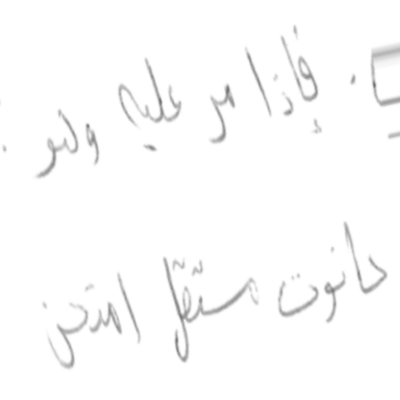 . فإذا مر عليه وهو
حانوت مستقل امتحن